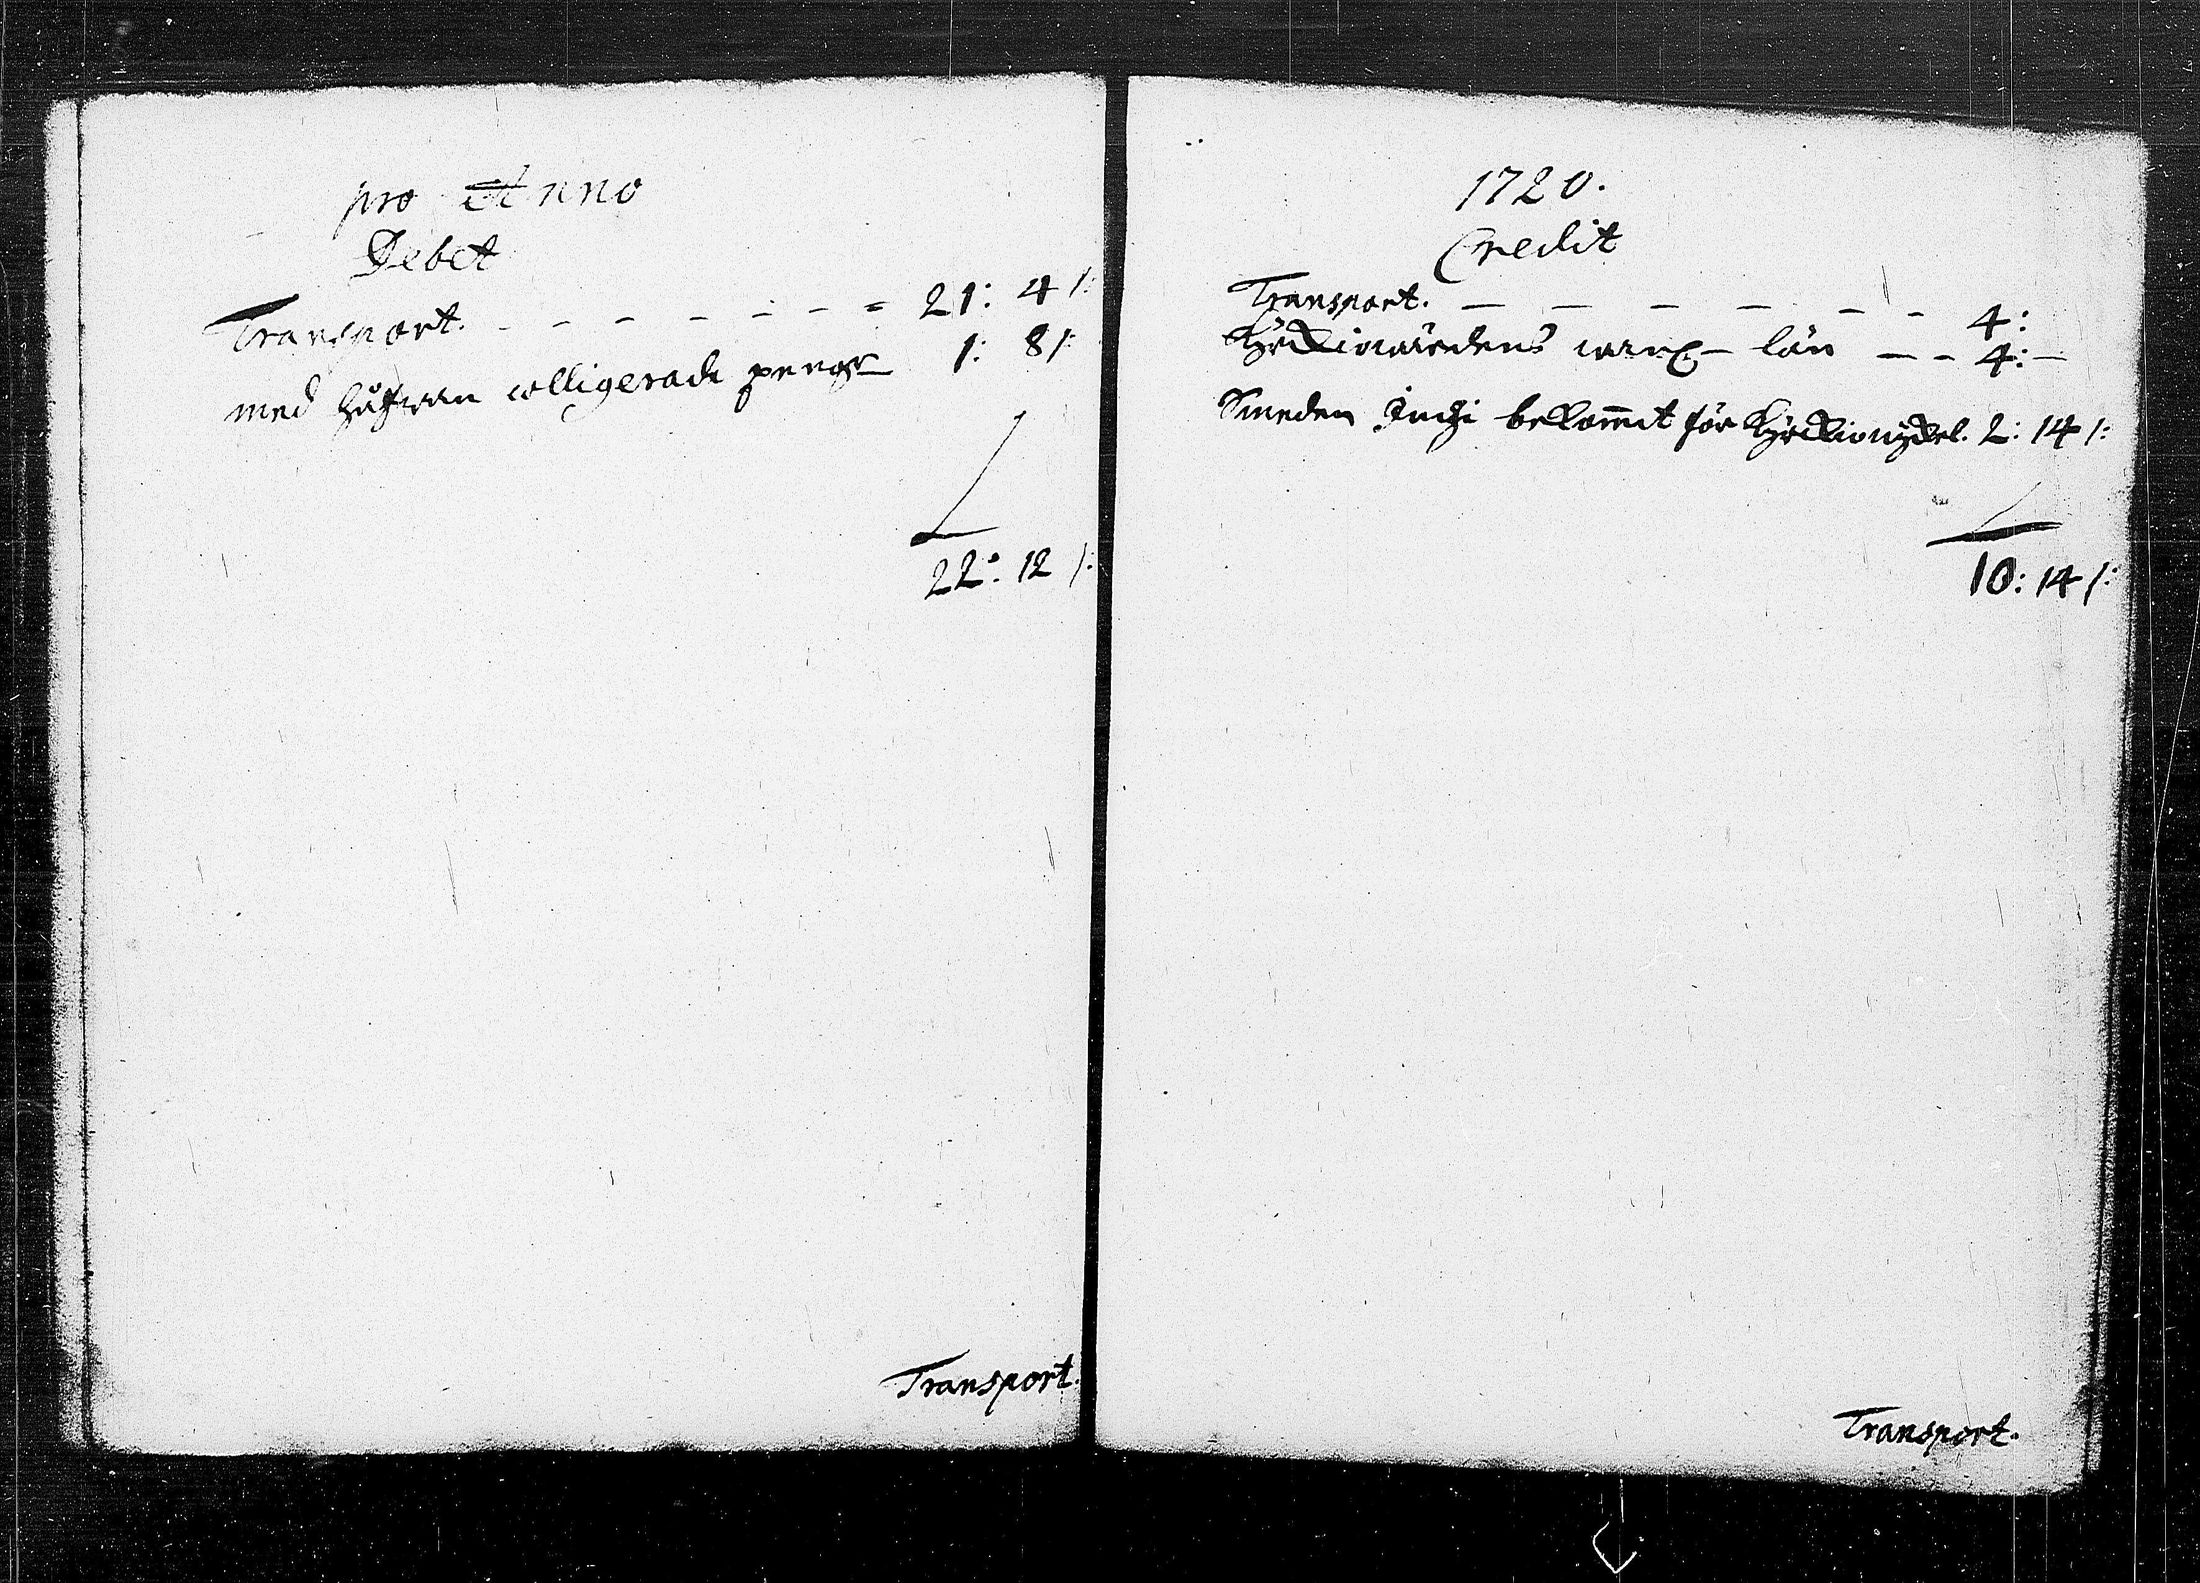 pro Anno
Debet
Transport. - - - - - - = 21: 4 /:
med håfwan colligerade peng 1: 8 /:
22: 12 /:
Transport.
1720.
Credit
Transport. - - - - - - 4:
Kyrckiowärdens lön - - 4: -
Smeden bekommit för Kyrckionyckel. 2: 14 /:
10: 14 /:
Transport.